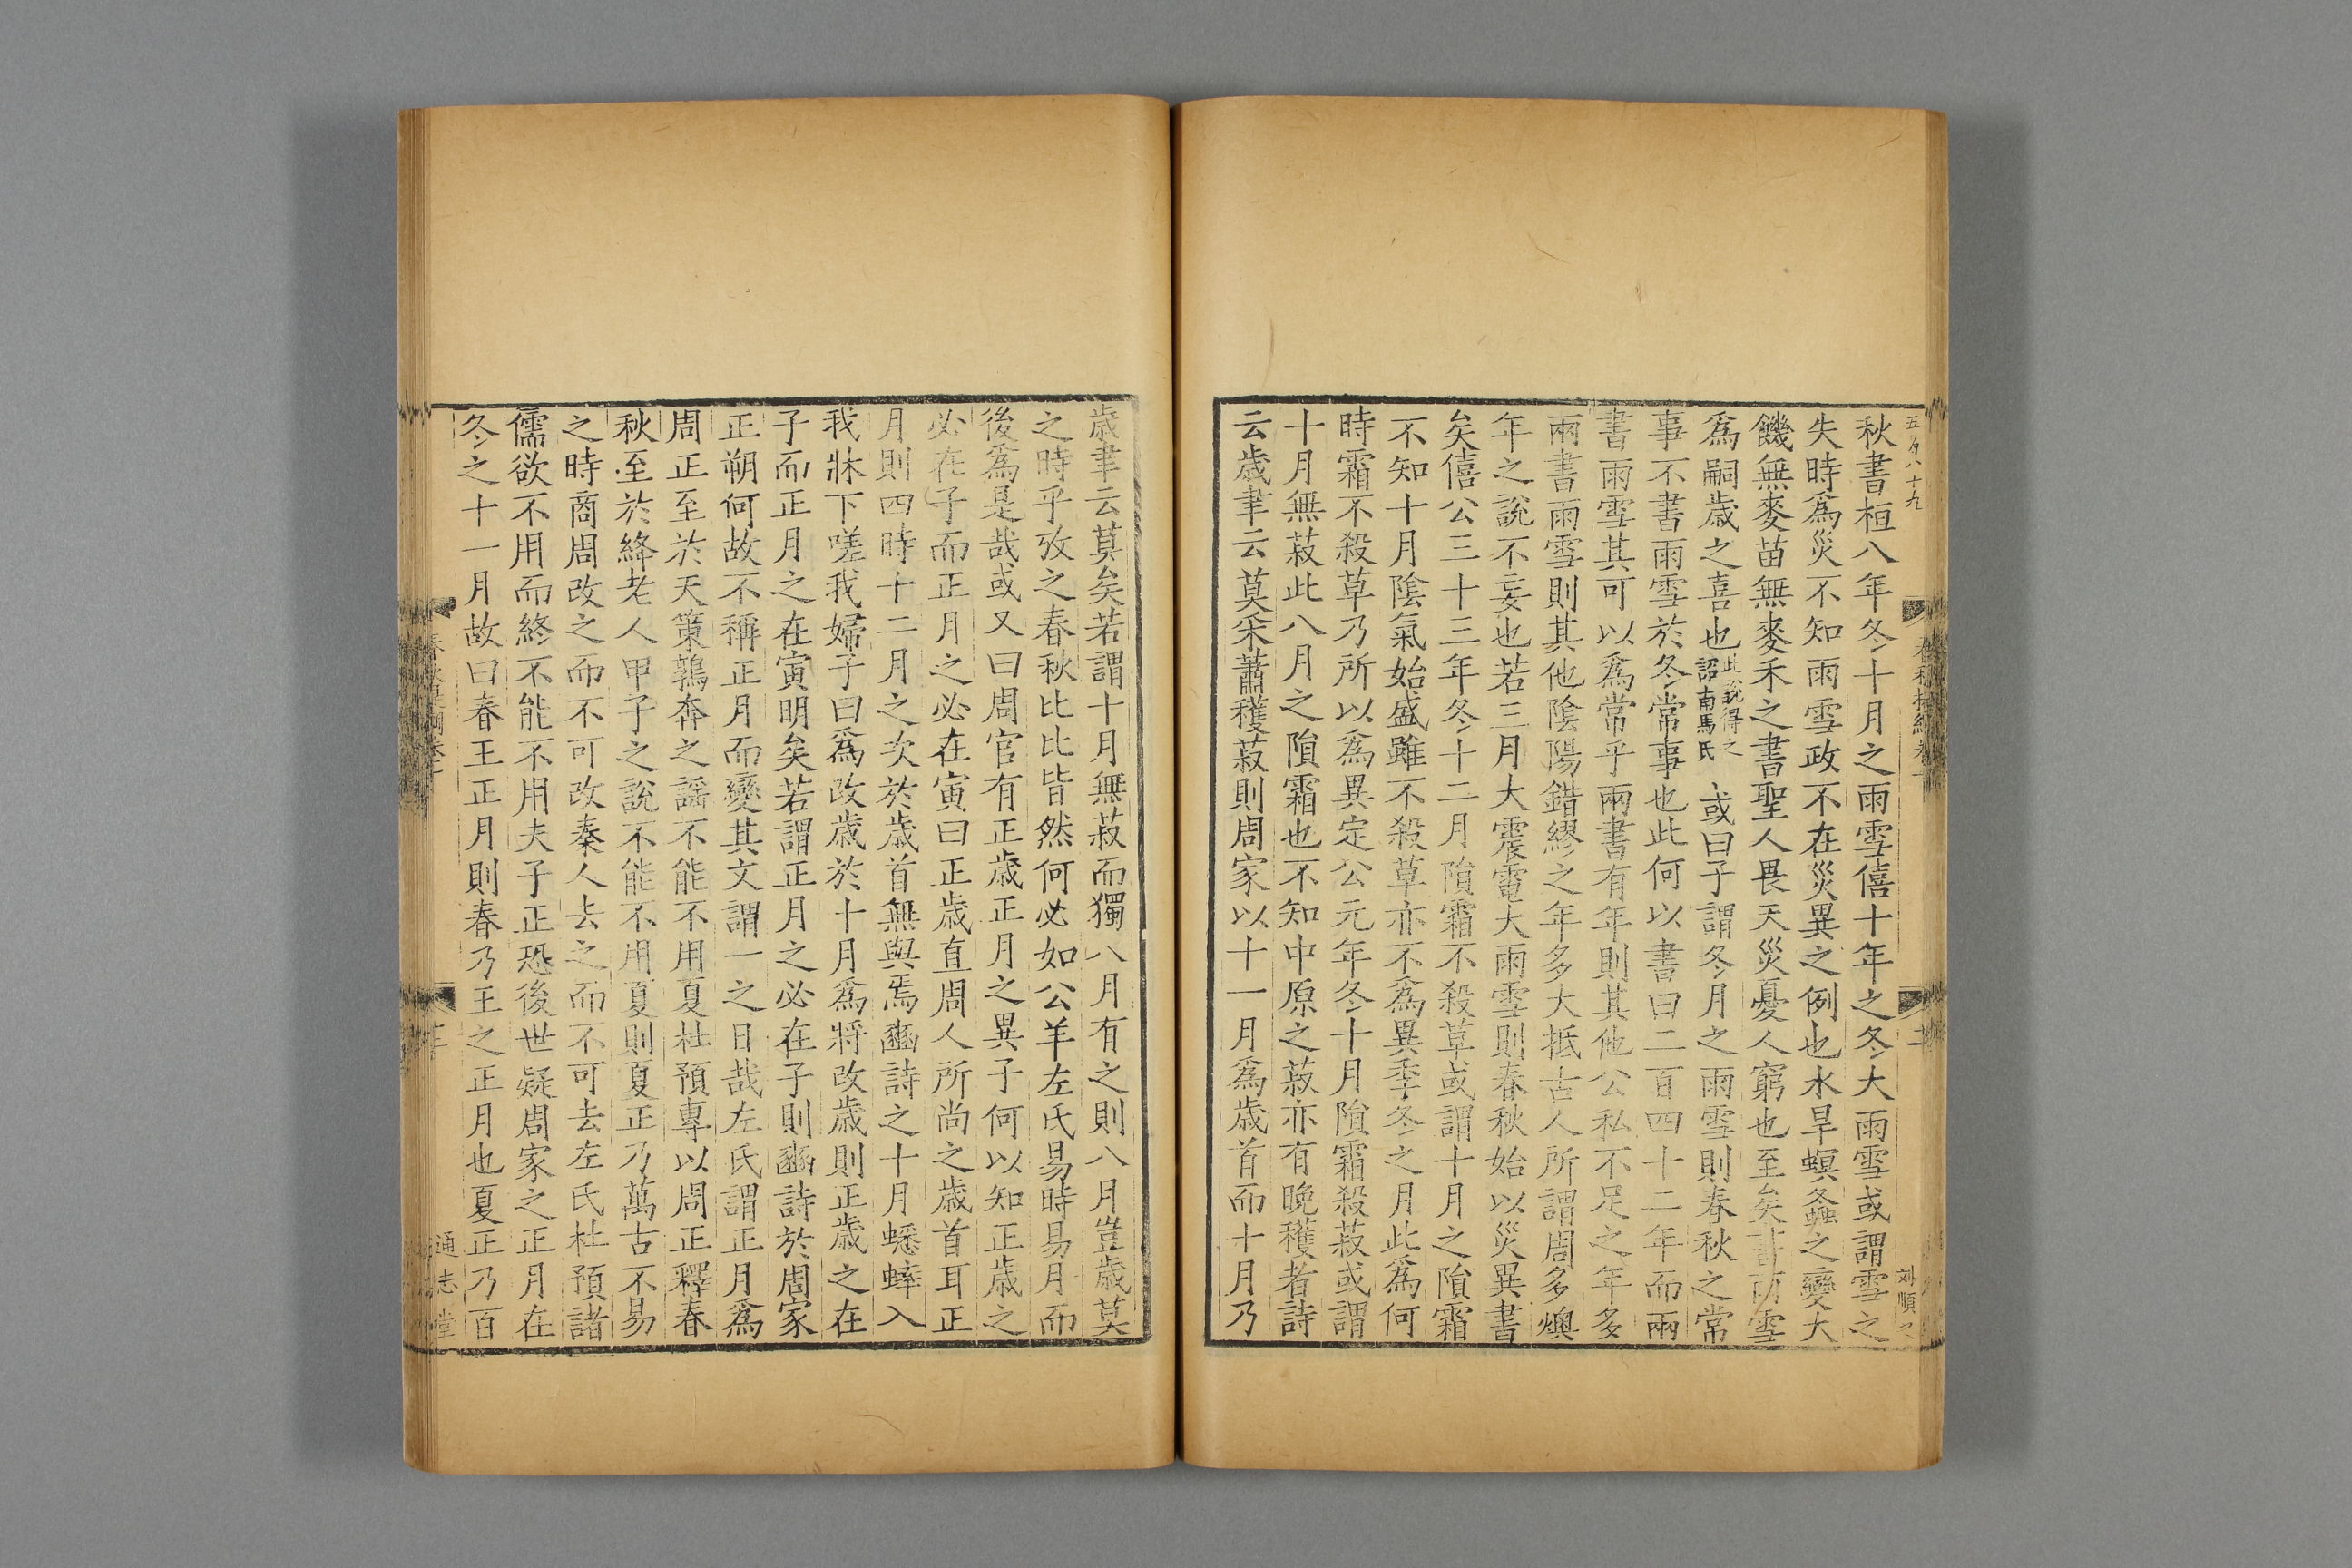 五百八十九
秋書桓八年冬十月之雨雪僖十年之冬大雨雪或謂雪之
失時爲災不知雨雪政不在災異之例也水旱螟螽之變大
饑無麥苗無麥禾之書聖人畏天災憂人窮也至矣書雨雪
爲嗣歲之喜也此說得之詔南馬氏或曰子謂冬月之雨雪則春秋之常
事不書雨雪於冬常事也此何以書曰二百四十二年而兩
書雨雪其可以爲常乎兩書有年則其他公私不足之年多
兩書雨雪則其他陰陽錯繆之年多大抵古人所謂周多燠
年之說不妄也若三月大震電大雨雪則春秋始以災異書
矣僖公三十三年冬十二月隕霜不殺草或謂十月之隕霜
不知十月陰氣始盛雖不殺草亦不爲異季冬之月此爲何
時霜不殺草乃所以爲異定公元年冬十月隕霜殺菽或謂
十月無菽此八月之隕霜也不知中原之菽亦有晚穫者詩
云歲聿云莫采蕭穫菽則周家以十一月爲歲首而十月乃
歲聿云莫矣若謂十月無菽而獨八月有之則八月豈歲莫
之時乎攷之春秋比比皆然何必如公羊左氏易時易月而
後爲是哉或又曰周官有正歲正月之異子何以知正歲之
必在子而正月之必在寅曰正歲直周人所尚之歲首耳正
月則四時十二月之次於歲首無與焉豳詩之十月蟋蟀入
我牀下嗟我婦子曰爲改歲於十月爲將改歲則正歲之在
子而正月之在寅明矣若謂正月之必在子則豳詩於周家
正朔何故不稱正月而變其文謂一之日哉左氏謂正月爲
周正至於天策鶉奔之謡不能不用夏杜預專以周正釋春
秋至於絳老人甲子之說不能不用夏則夏正乃萬古不易
之時商周改之而不可改秦人去之而不可去左氏杜預諸
儒欲不用而終不能不用夫子正恐後世疑周家之正月在
冬之十一月故曰春王正月則春乃王之正月也夏正乃百
通志堂